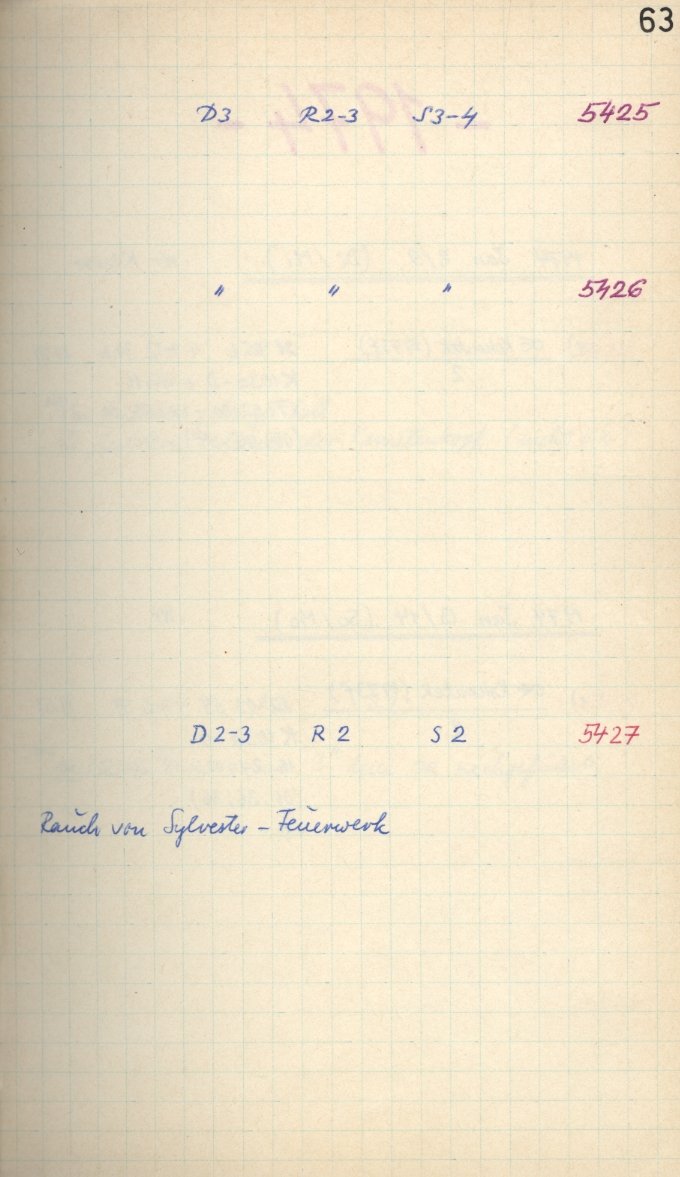 63
D3 R2-3 S3-4 5425
" " " 5426
D2-3 R2 S2 5427
Rauch von Sylvester - Feuerwerk